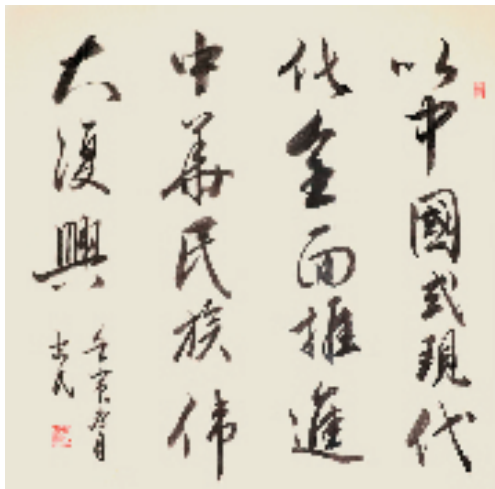 以中國式現代
化全面推進
中華民族伟
大復興
壬寅月
民